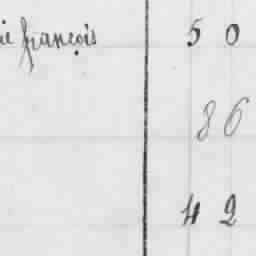 françois 50
86
42